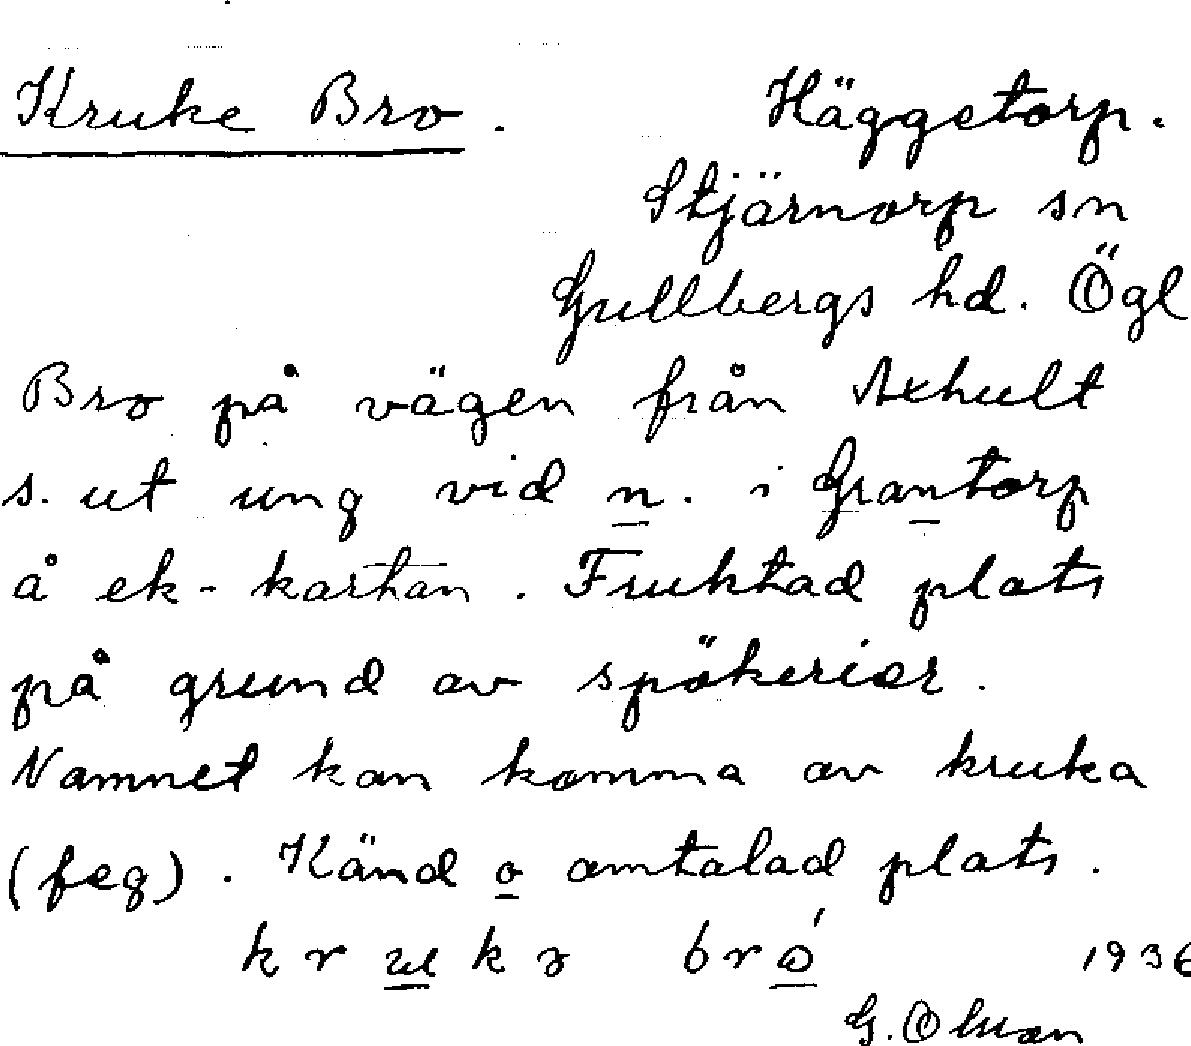 Kruke Bro. Häggetorp.
Stjärnorp sn
Gullbergs hd. Ögl
Bro på vägen från Axhult
s. ut ung vid n. i Grantorp
å ek-kartan. Fruktad plats
på grund av spökerier.
Namnet kan komma av kruka
(feg). Känd o omtalad plats.
krukə bró 1936
G. Olson